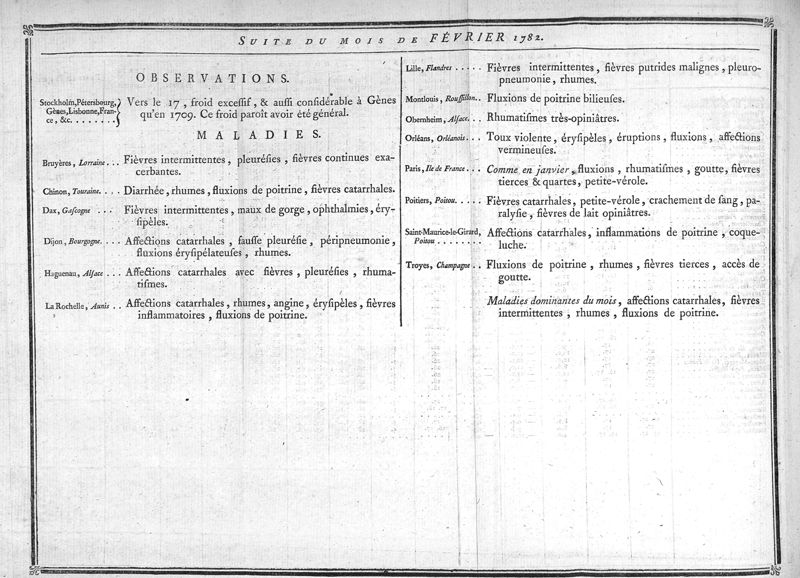 SUITE DU MOIS DE FÉVRIER 1782.
OBSERVATIONS.
Stockholm, Pétersbourg, Gènes, Lisbonne, France, &c. . . . . . . . . Vers le 17, froid exceſſif, & auſſi conſidérable à Gènes
qu'en 1709. Ce froid paroît avoir été général.
MALADIES.
Bruyères, Lorraine . . . Fièvres intermittentes, pleuréſies, fièvres continues exa-
cerbantes.
Chinon, Touraine. . . . Diarrhée, rhumes, fluxions de poitrine, fièvres catarrhales.
Dax, Gaſcogne . . . Fièvres intermittentes, maux de gorge, ophthalmies, éry-
ſipèles.
Dijon, Bourgogne. . . . Affections catarrhales, fauſſe pleuréſie, péripneumonie,
fluxions éryſipélateuſes, rhumes.
Haguenau, Alſace . . . Affections catarrhales avec fièvres, pleuréſies, rhuma-
tiſmes.
La Rochelle, Aunis . . Affections catarrhales, rhumes, angine, éryſipèles, fièvres
inflammatoires, fluxions de poitrine.
Lille, Flandres . . . . . Fièvres intermittentes, fièvres putrides malignes, pleuro-
pneumonie, rhumes.
Montlouis, Rouſſillon. . Fluxions de poitrine bilieuſes.
Obernheim, Alſace. . . Rhumatiſmes très-opiniâtres.
Orléans, Orléanois. . . Toux violente, éryſipèles, éruptions, fluxions, affections
vermineuſes.
Paris, Ile de France . . . Comme en janvier, fluxions, rhumatiſmes, goutte, fièvres
tierces & quartes, petite-vérole.
Poitiers, Poitou. . . . . Fièvres catarrhales, petite-vérole, crachement de ſang, pa-
ralyſie, fièvres de lait opiniâtres.
Saint-Maurice-le-Girard, Affections catarrhales, inflammations de poitrine, coque-
Poitou . . . . . . . . luche.
Troyes, Champagne . . Fluxions de poitrine, rhumes, fièvres tierces, accès de
goutte.
Maladies dominantes du mois, affections catarrhales, fièvres
intermittentes, rhumes, fluxions de poitrine.